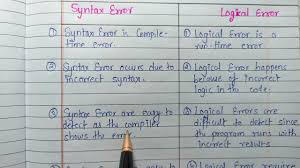 Syntax Error
Logical Error
① Syntax Error is Compile-
time error.
① Logical Error is a
run-time error.
② Syntax Error occurs due to
incorrect syntax.
② Logical Error happens
because of incorrect
logic in the code.
③ Syntax Error are easy to
detect as the compiler
shows the error
③ Logical Errors are
difficult to detect since
the program runs with
incorrect results
Logical Error requires